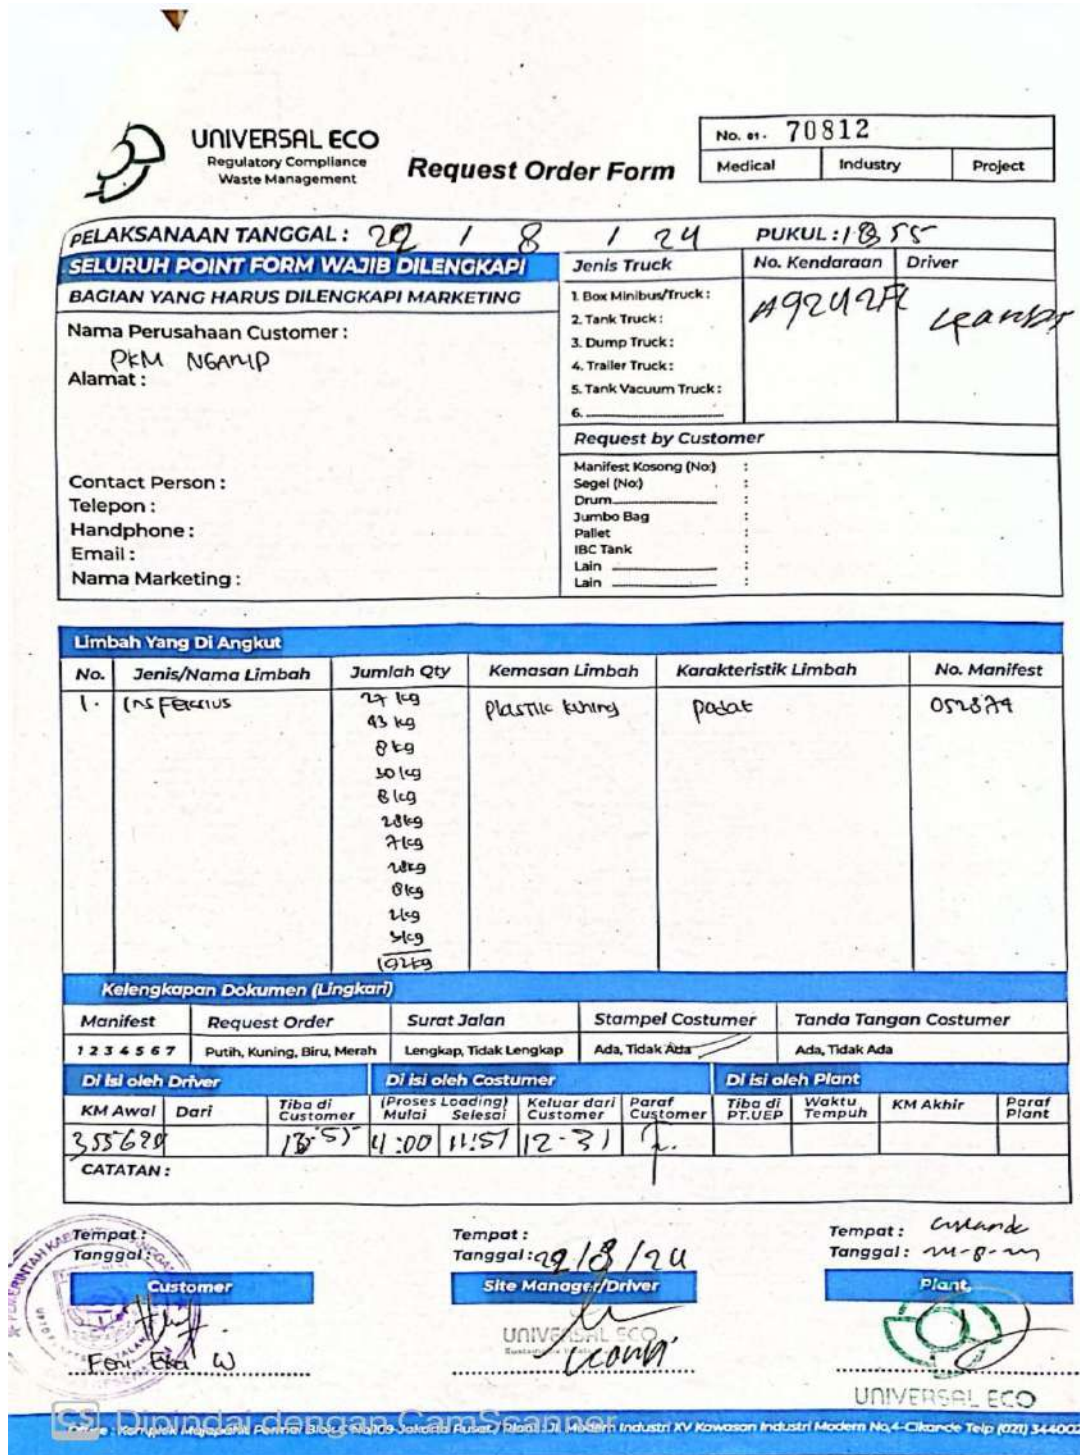 UNIVERSAL ECO
Regulatory Compliance
Waste Management
Request Order Form
No. 01. 70812
Medical Industry Project
PELAKSANAAN TANGGAL : 22 / 8 / 24 PUKUL :
SELURUH POINT FORM WAJIB DILENGKAPI
Jenis Truck No. Kendaraan Driver
BAGIAN YANG HARUS DILENGKAPI MARKETING
Nama Perusahaan Customer :
PKM
Alamat :
Contact Person :
Telepon :
Handphone :
Email :
Nama Marketing :
1. Box Minibus/Truck :
2. Tank Truck :
3. Dump Truck :
4. Trailer Truck :
5. Tank Vacuum Truck :
6.
Request by Customer
Manifest Kosong (No:) :
Segel (No:) :
Drum :
Jumbo Bag :
Pallet :
IBC Tank :
Lain :
Lain :
Limbah Yang Di Angkut
No. Jenis/Nama Limbah Jumlah Qty Kemasan Limbah Karakteristik Limbah No. Manifest
1. Infeccius 27 kg Plastic kuning padat
43 kg
8 kg
30 kg
8 kg
28 kg
7 kg
28 kg
8 kg
2 kg
3 kg
192 kg
Kelengkapan Dokumen (Lingkari)
Manifest Request Order Surat Jalan Stampel Costumer Tanda Tangan Costumer
1 2 3 4 5 6 7 Putih, Kuning, Biru, Merah Lengkap, Tidak Lengkap Ada, Tidak Ada Ada, Tidak Ada
Di Isi oleh Driver Di isi oleh Costumer Di isi oleh Plant
KM Awal Dari Tiba di Customer (Proses Loading) Mulai Selesai Keluar dari Customer Paraf Customer Tiba di PT.UEP Waktu Tempuh KM Akhir Paraf Plant
11:57 12-31
CATATAN :
Tempat :
Tanggal :
Customer
Feni Eka W
Tempat :
Tanggal : 22/8/24
Site Manager/Driver
UNIVERSAL ECO
Tempat : Cikande
Tanggal :
Plant,
UNIVERSAL ECO
CS Dipindai dengan CamScanner
Industri XV Kawasan Industri Modern No,4-Cikande Telp (021) 344002